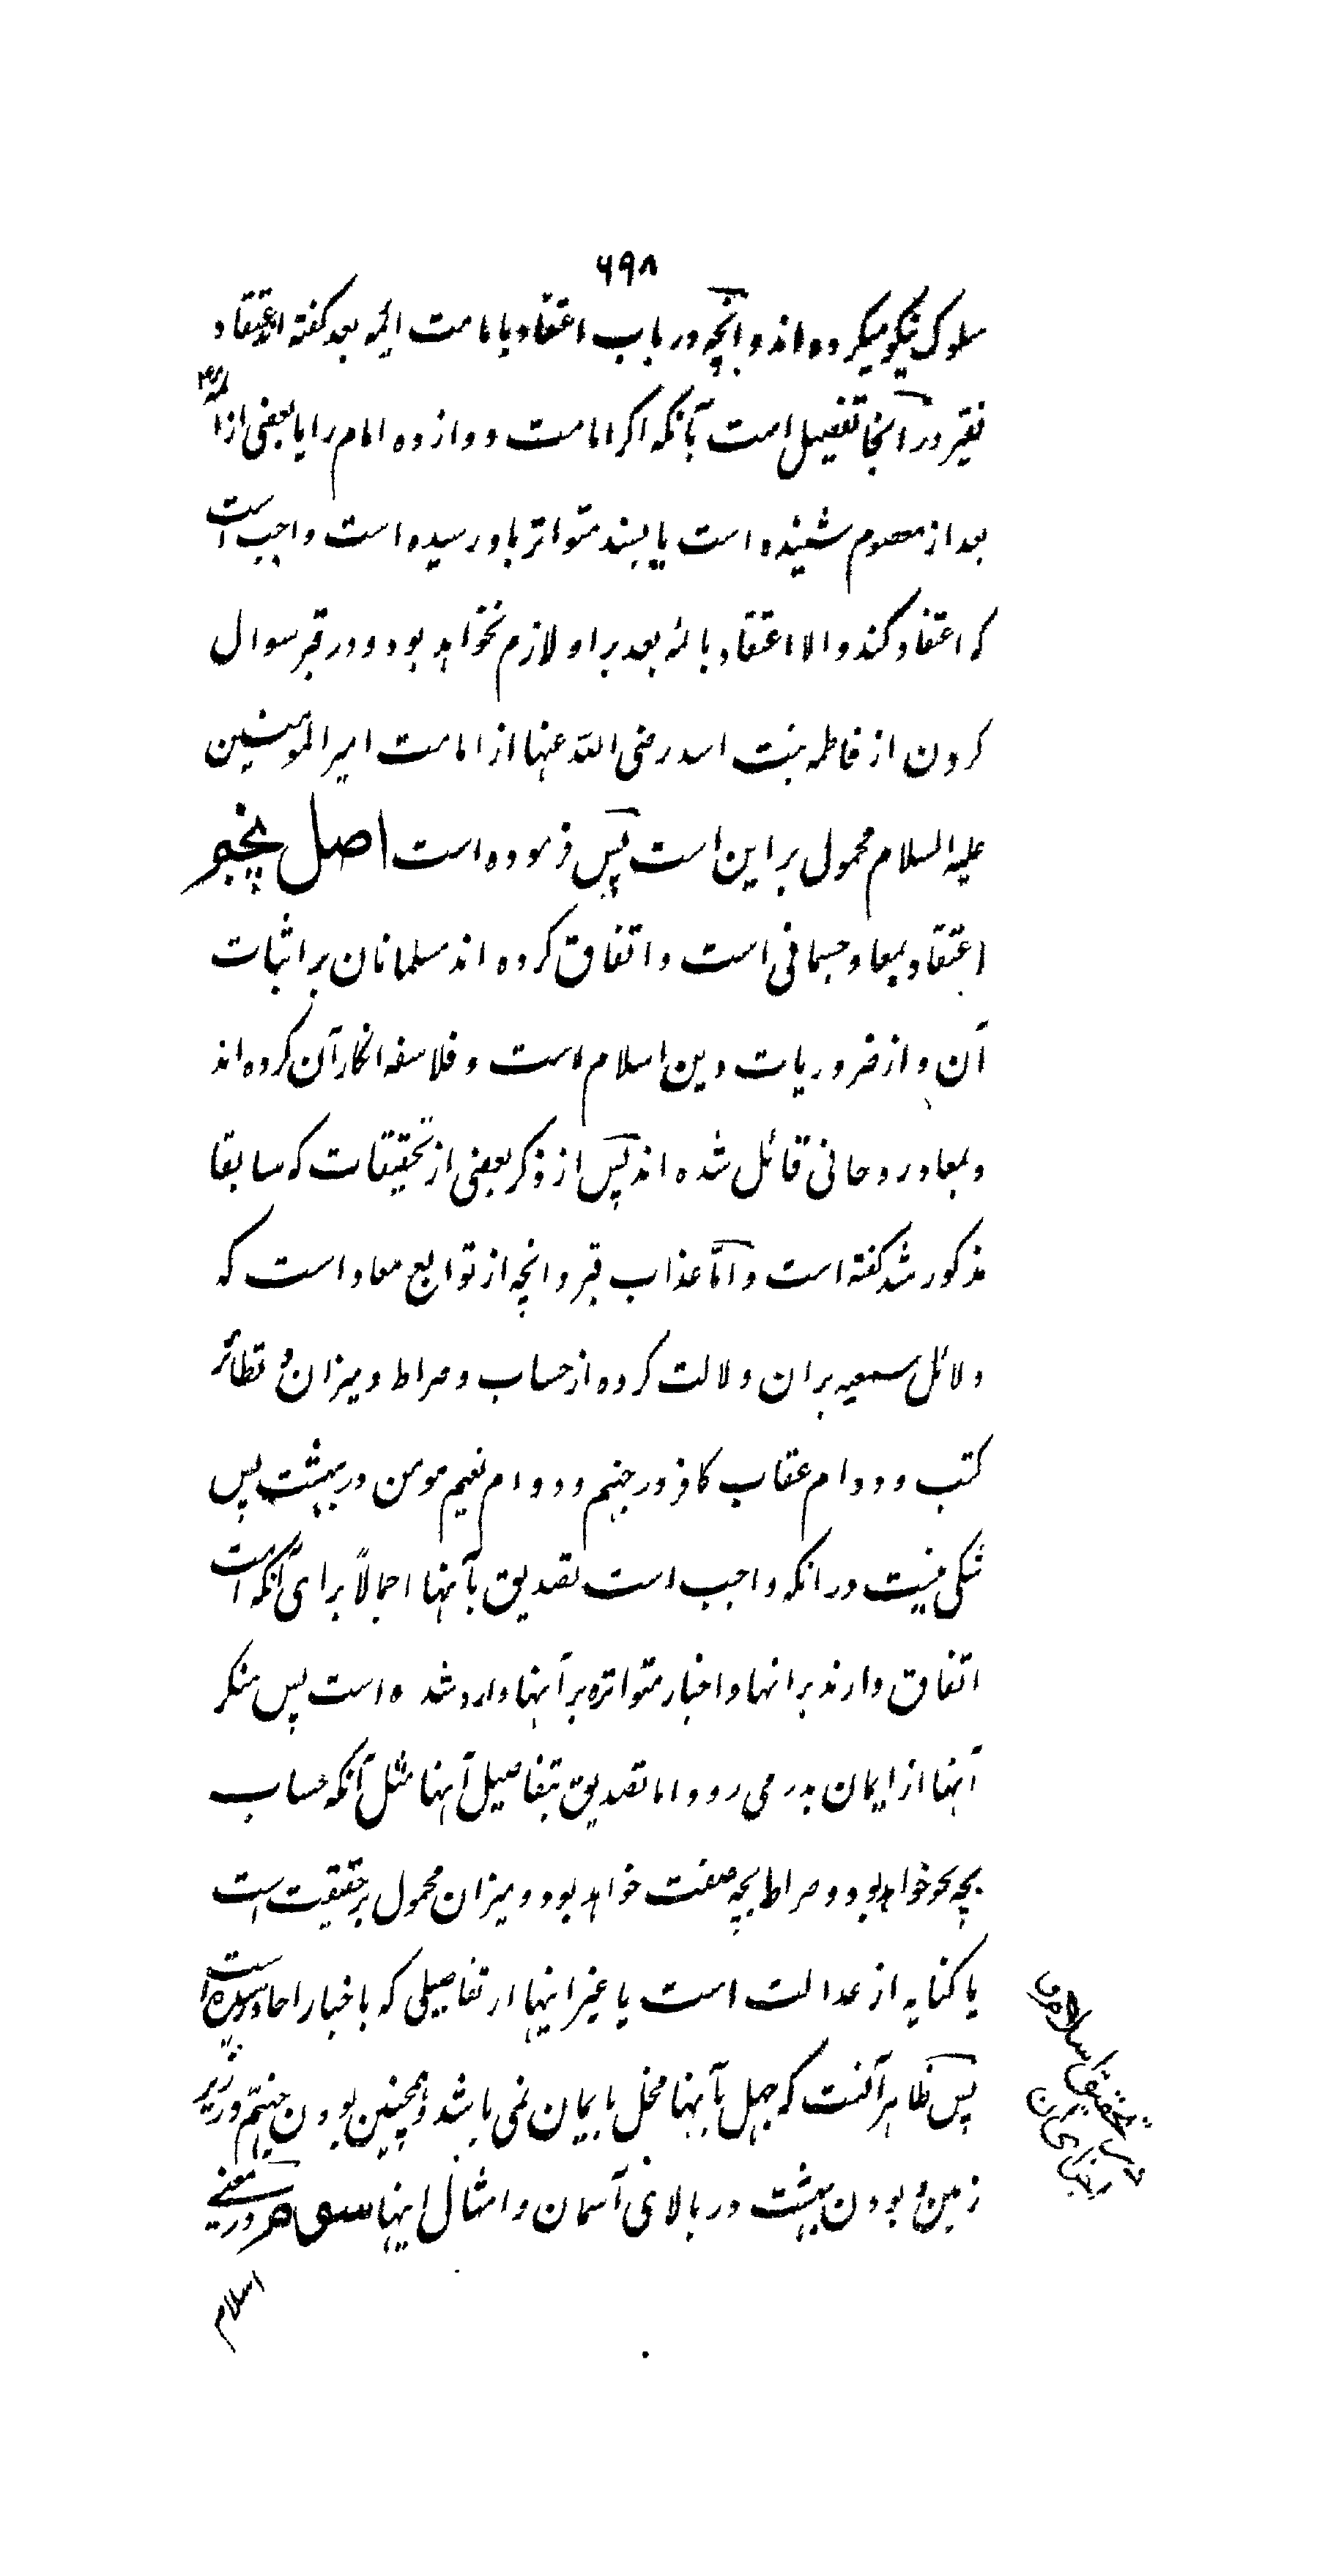 ۶۹۸
سلوک نیکو میکرده اند و آنچه در باب اعتقاد بامامت ائمه بعد گفته اند اعتقاد
فقیر در آنجا تفصیل است بآنکه اکر امامت دوازده امام را یا بعضی از ائمه
بعد از معصوم شنیده است یا بسند متواتر باو رسیده است واجب است
که اعتقاد کند و الا اعتقاد بائمه بعد بر او لازم نخواهد بود و در قبر سوال
کردن از فاطمه بنت اسد رضی الله عنها از امامت امیر المومنین
علیه السلام محمول بر این است پس فرموده است اصل پنجم
اعتقاد بمعاد جسمانی است و اتفاق کرده اند مسلمانان بر اثبات
آن و از ضروریات دین اسلام است و فلاسفه انکار آن کرده اند
و بمعاد روحانی قائل شده اند پس از ذکر بعضی از تحقیقات که سابقا
مذکور شد گفته است و امّا عذاب قبر و انچه از توابع معاد است که
دلائل سمعیه بران دلالت کرده از حساب و صراط و میزان و تطائر
کتب و دوام عقاب کافر در جهنم و دوام نعیم مومن در بهشت پس
شکی نیست در انکه واجب است تصدیق بآنها اجمالاً برای آنکه امت
اتفاق دارند بر انها و اخبار متواتره بر آنها وارد شده است پس منکر
آنها از ایمان بدر می رود و اما تصدیق بتفاصیل آنها مثل آنکه حساب
بچه نحو خواهد بود و صراط بچه صفت خواهد بود و میزان محمول بر حقیقت است
یا کنایه از عدالت است یا غیر اینها از تفاصیلی که باخبار احاد رسیده است
پس ظاهر آنست که جهل بآنها مخل بایمان نمی باشد و همچنین بودن جهنم در زیر
زمین و بودن بهشت در بالای آسمان و امثال اینها سوم در معنے
اسلام